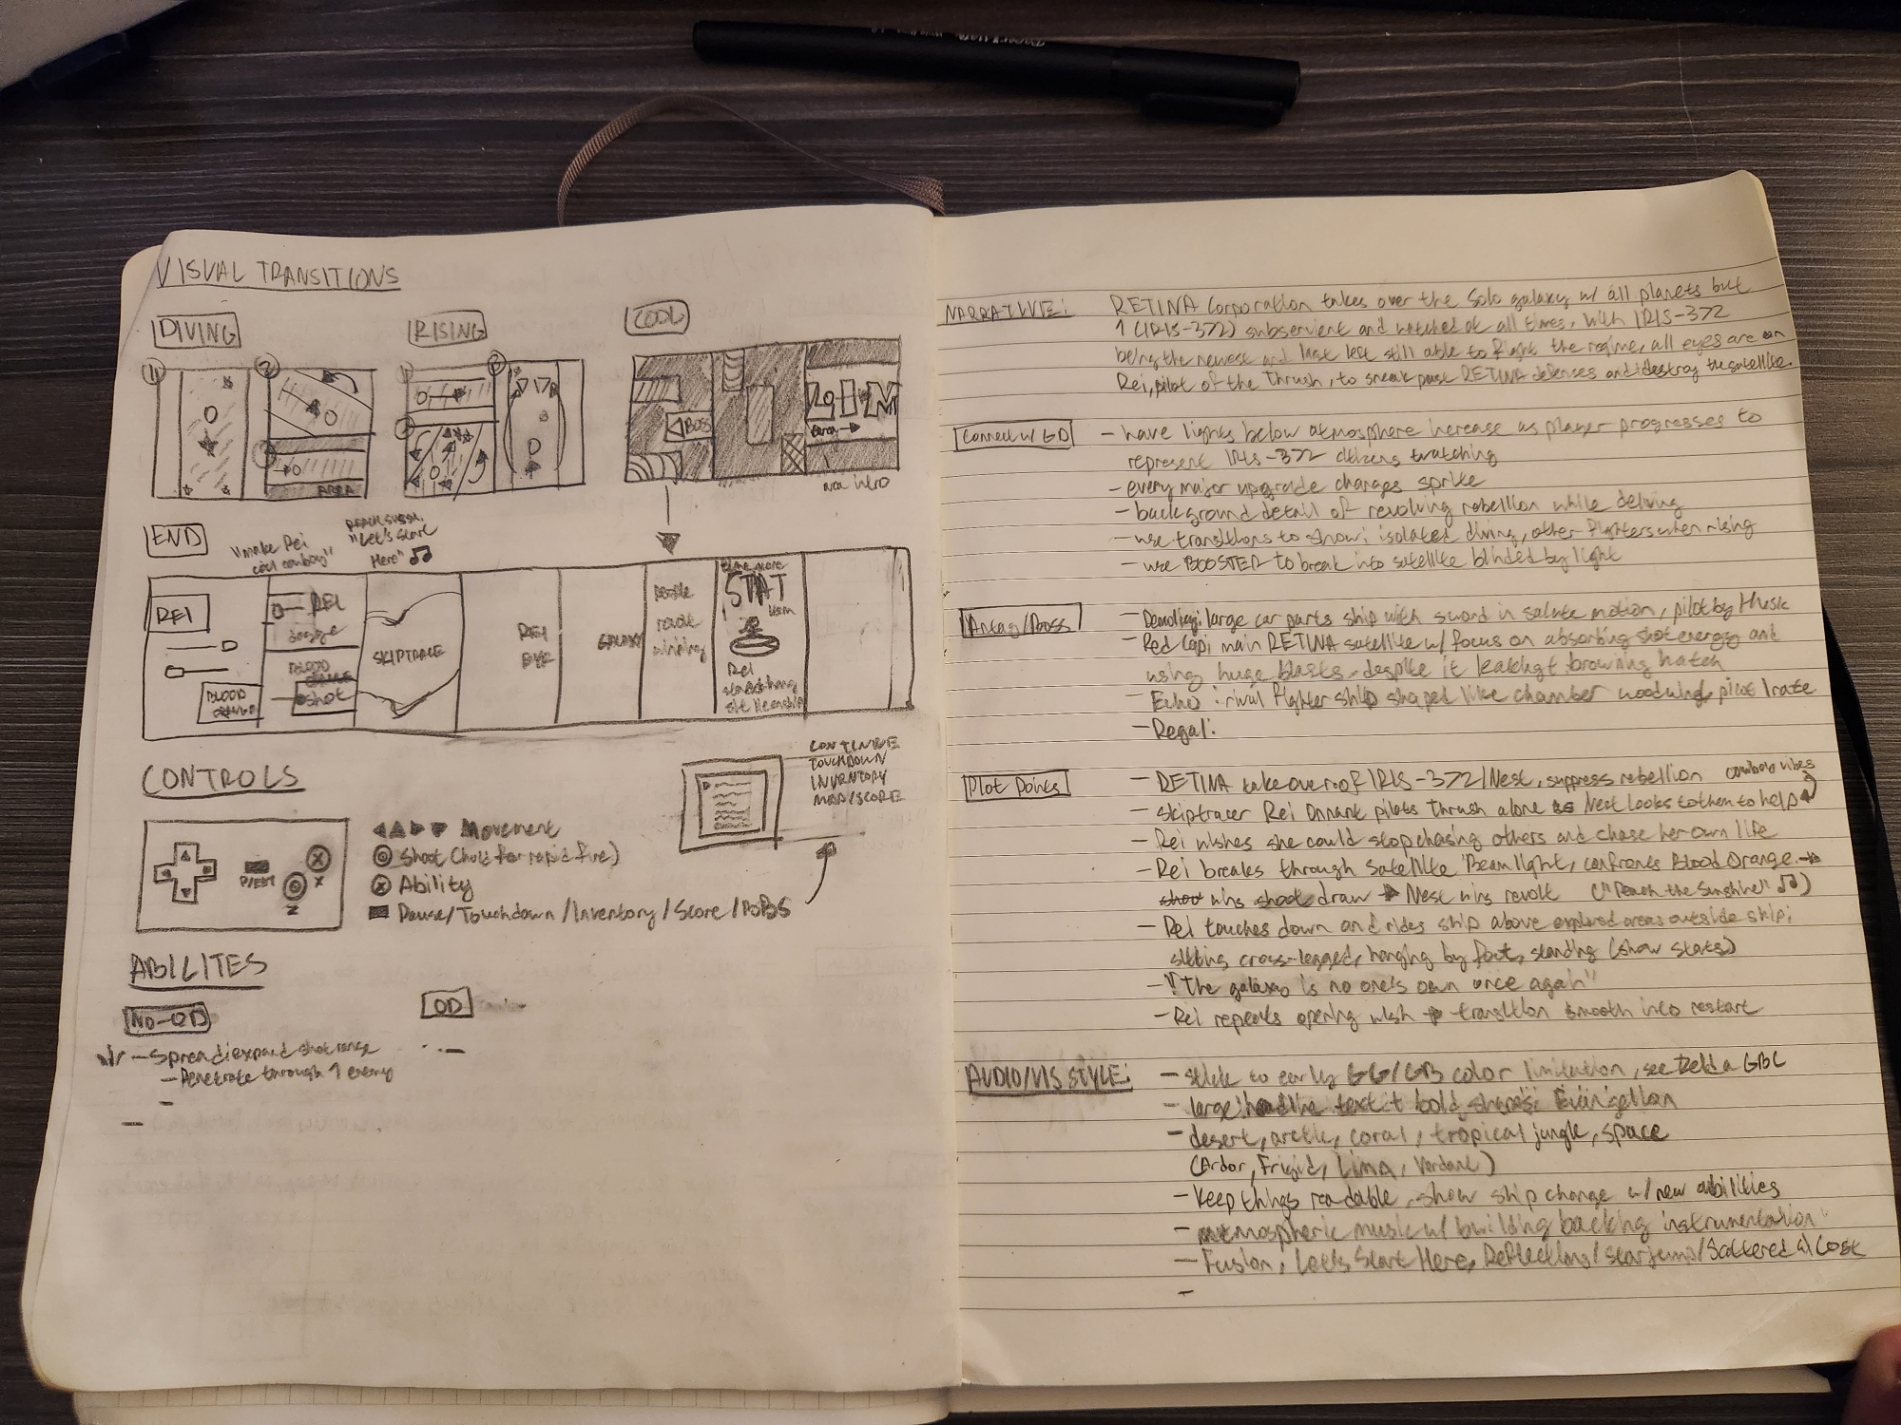 VISUAL TRANSITIONS
DIVING
RISING
COOL
1
2
3
AREA
1
2
3
BOSS
area intro
END
"make Rei
cool cowboy"
"Let's Start
Here"
REI
BLOOD
ORANGE
REI
BLOOD
ORANGE
shot
SKIPTRACE
REI
EYE
GALAXY
people
revolt
winning
STAT
Rei
CONTROLS
CONTINUE
TOUCHDOWN
INVENTORY
MAP/SCORE
X
Z
Movement
Shoot (hold for rapid fire)
Ability
Pause/Touchdown/Inventory/Score/
ABILITES
NO-OD
OD
- Spread: expand shot range
- Penetrate through 1 enemy
NARRATIVE: RETINA Corporation takes over the Solo galaxy w/ all planets but
1 (IRIS-372) subservient and watched at all times. With IRIS-372
being the newest and last left still able to fight the regime, all eyes are on
Rei, pilot of the Thrush, to sneak past RETINA defenses and destroy the satellite.
Connect w/ GD - have lights below atmosphere increase as player progresses to
represent IRIS-372 citizens watching
- every major upgrade changes sprite
- background detail of revolving rebellion while delving
- use transitions to show: isolated diving, other fighters when rising
- use BOOSTER to break into satellite blinded by light
Antag/Boss - large car parts ship with sword in salute motion, pilot by Musk
- Red Capi main RETINA satellite w/ focus on absorbing shot energy and
using huge blasts, despite it browning hatch
- Echo: rival fighter ship shaped like chamber woodwind, pilot Irate
- Regal:
Plot Points - RETINA takeover of IRIS-372/Nest, suppress rebellion cowboy vibes
- Skiptracer Rei pilots Thrush alone as Nest looks to them to help
- Rei wishes she could stop chasing others and chase her own life
- Rei breaks through satellite Beam light, confronts Blood Orange →
shot wins shoot draw → Nest wins revolt ("Reach the Sunshine")
- Rei touches down and rides ship above explored areas outside ship:
sitting cross-legged, hanging by foot, standing (show stats)
- "The galaxy is no one's own once again"
- Rei repeats opening wish → transition smooth into restart
AUDIO/VIS STYLE: - stick to early GG/GB color limitation, see Zelda GBC
- large headline text + bold shapes: Evangelion
- desert, arctic, coral, tropical jungle, space
(Ardor, Frigid, Lima, Verdant)
- keep things readable, show ship change w/ new abilities
- atmospheric music w/ building backing instrumentation
- Fusion, Let's Start Here, Reflections/starjump/Scattered & Lost
-